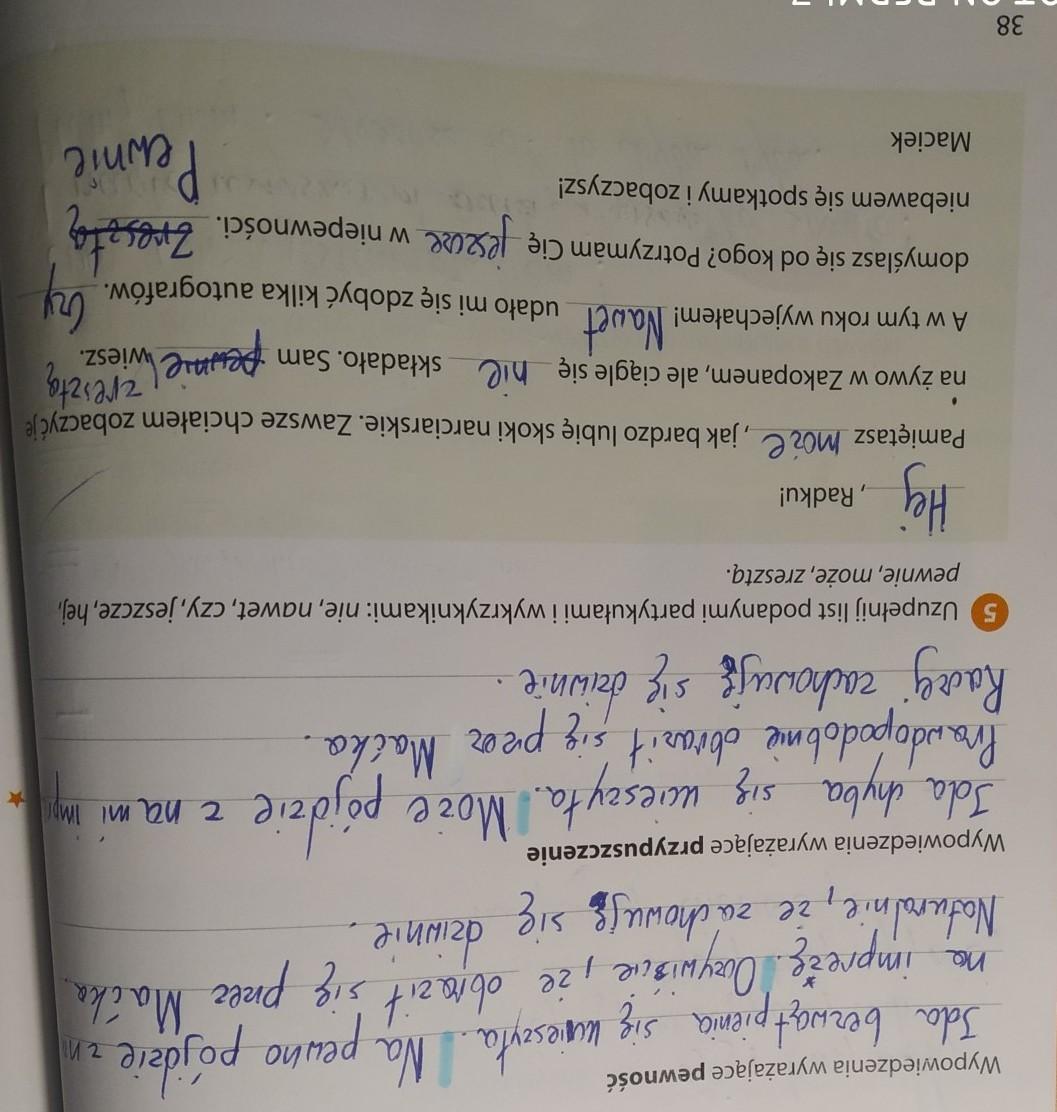 Wypowiedzenia wyrażające pewność
Ida bezwątpienia się ucieszyła. Na pewno pójdzie z n
na imprezę. Oczywiście, że obraził się przez Maćka.
Naturalnie, że zachowuję się dziwnie.
Wypowiedzenia wyrażające przypuszczenie
Ida chyba się ucieszyła. Może pójdzie z nami imp
Prawdopodobnie obraził się przez Maćka.
Raczej zachowuję się dziwnie.
5 Uzupełnij list podanymi partykułami i wykrzyknikami: nie, nawet, czy, jeszcze, hej,
pewnie, może, zresztą.
Hej, Radku!
Pamiętasz może, jak bardzo lubię skoki narciarskie. Zawsze chciałem zobaczyć je
na żywo w Zakopanem, ale ciągle się nie składało. Sam pewnie zresztą wiesz.
A w tym roku wyjechałem! Nawet udało mi się zdobyć kilka autografów. Czy
domyślasz się od kogo? Potrzymam Cię jeszcze w niepewności. Zresztą
niebawem się spotkamy i zobaczysz! Pewnie
Maciek
38